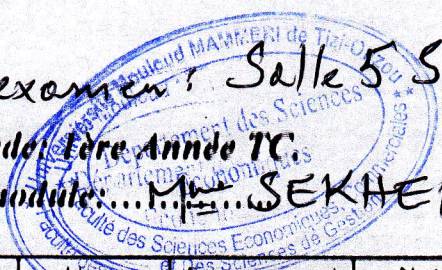 examen: Salle 5 S
de: 1ère Année TC.
module:....Mme....SEKHE
Université Mouloud MAMMERI de Tizi-Ouzou
Département des Sciences
économiques
Faculté des Sciences Economiques
Commerciales
et Des Sciences de Gest